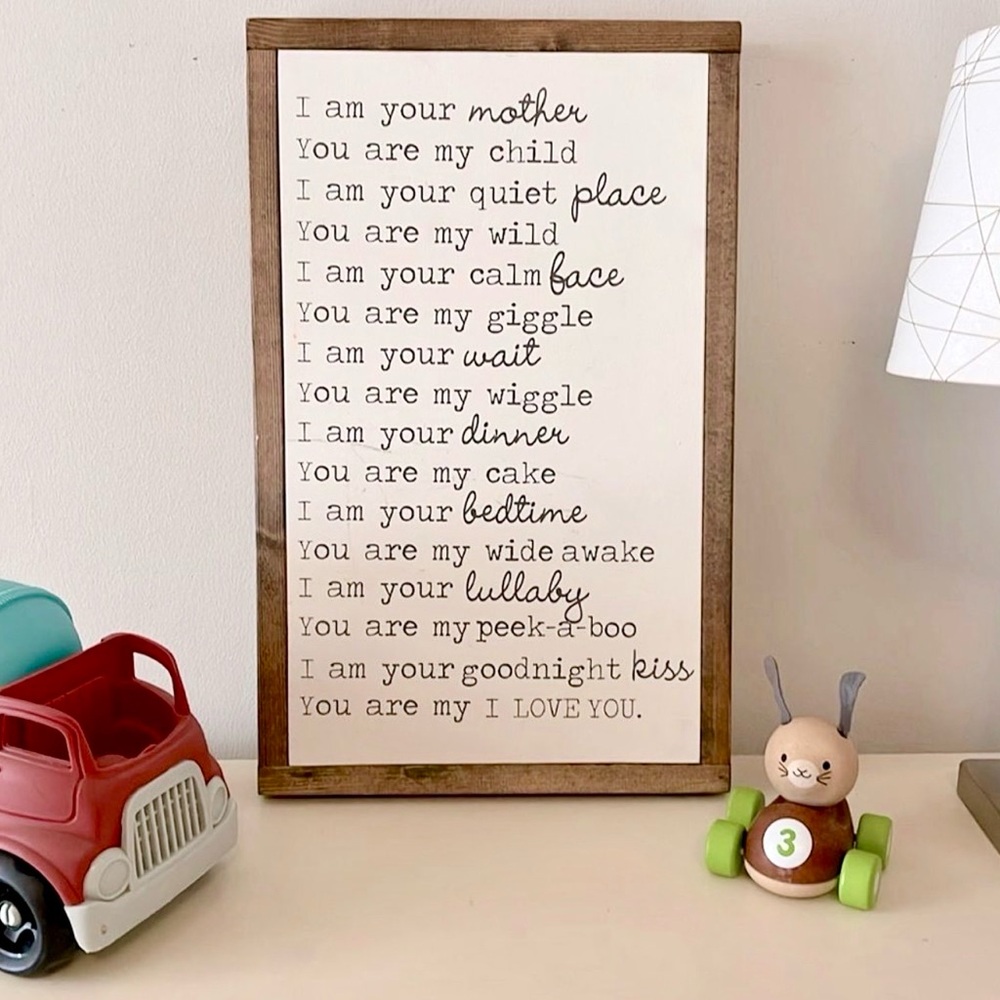 I am your mother
You are my child
I am your quiet place
You are my wild
I am your calm face
You are my giggle
I am your wait
You are my wiggle
I am your dinner
You are my cake
I am your bedtime
You are my wide awake
I am your lullaby
You are my peek-a-boo
I am your goodnight kiss
You are my I LOVE YOU.
3